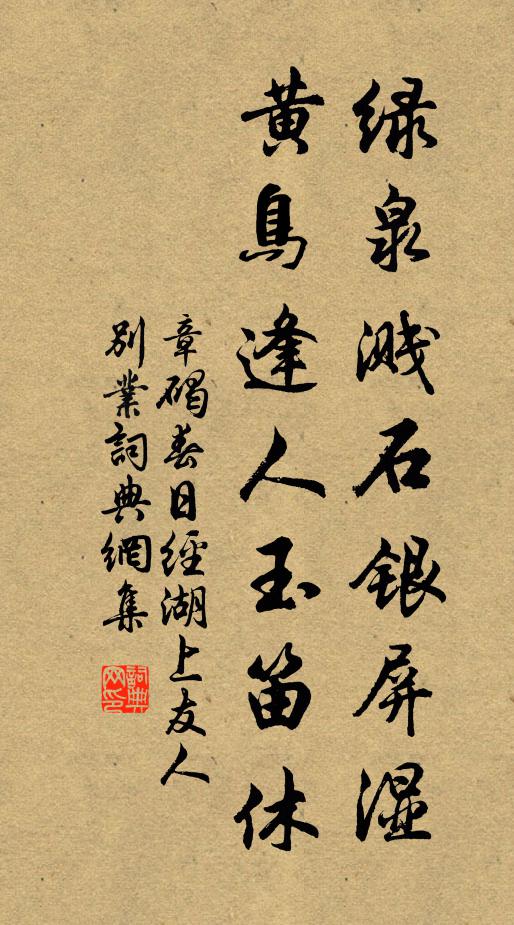 绿泉溅石银屏湿
黄鸟逢人玉笛休
章碣春日經湖上友人
别業詞典網集
詞典網印